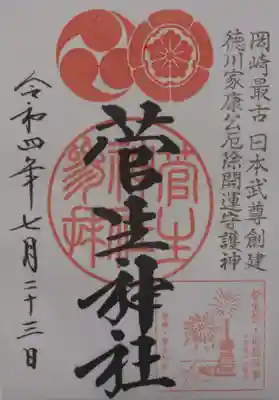 岡崎最古 日本武尊創建
徳川家康公厄除開運守護神
菅生神社
令和四年七月二十三日